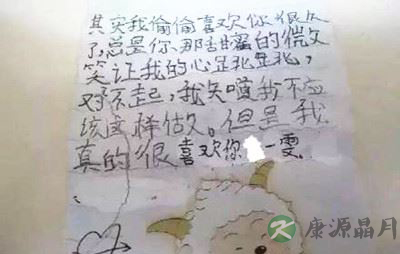 其实我偷偷喜欢你很久
了总是你那甜蜜的微
笑让我的心走儿走儿,
对不起,我知道我不应
该这样做。但是我
真的很喜欢你 一雯
康源晶月